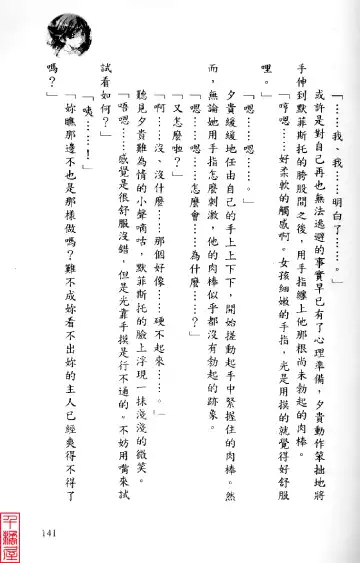 「……我、我……明白了……。」
或許是對自己再也無法逃避的事實早已有了心理準備,夕貴動作笨拙地將
手伸到默菲斯托的胯股間之後,用手指纏上他那根尚未勃起的肉棒。
「哼嗯……好柔軟的觸感啊。女孩細嫩的手指,光是用摸的就覺得好舒服
哩。」
「嗯……嗯……。」
夕貴緩緩地任由自己的手上上下下,開始搓動起手中緊握住的肉棒。然
而,無論她用手指怎麼刺激,他的肉棒似乎都沒有勃起的跡象。
「嗯……嗯……怎麼會……為什麼……?」
「又怎麼啦?」
「啊……沒、沒什麼……那個好像……硬不起來……」
聽見夕貴難為情的小聲嘀咕,默菲斯托的臉上浮現一抹淺淺的微笑。
「唔嗯……感覺是很舒服沒錯,但是光靠手摸是行不通的。不妨用嘴來試
試看如何?」
「咦……!」
「妳瞧那邊不也是那樣做嗎?難不成妳看不出妳的主人已經爽得不得了
嗎?」
141